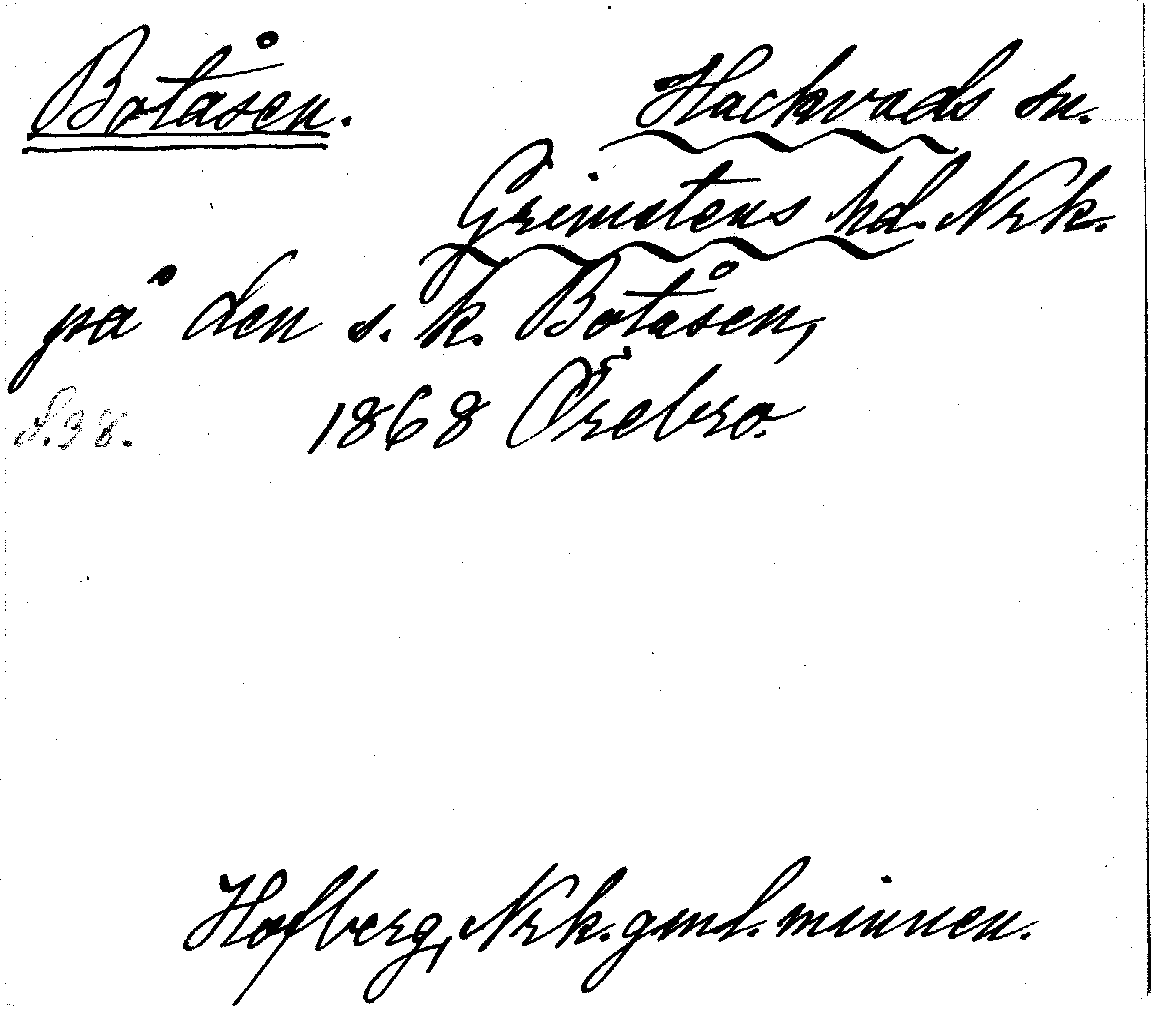 Botåsen. Hackvads sn.
Grimstens hd. Nrk.
på den s.k. Botåsen,
S.98. 1868 Örebro.
Hofberg, Nrk. gml. minnen.